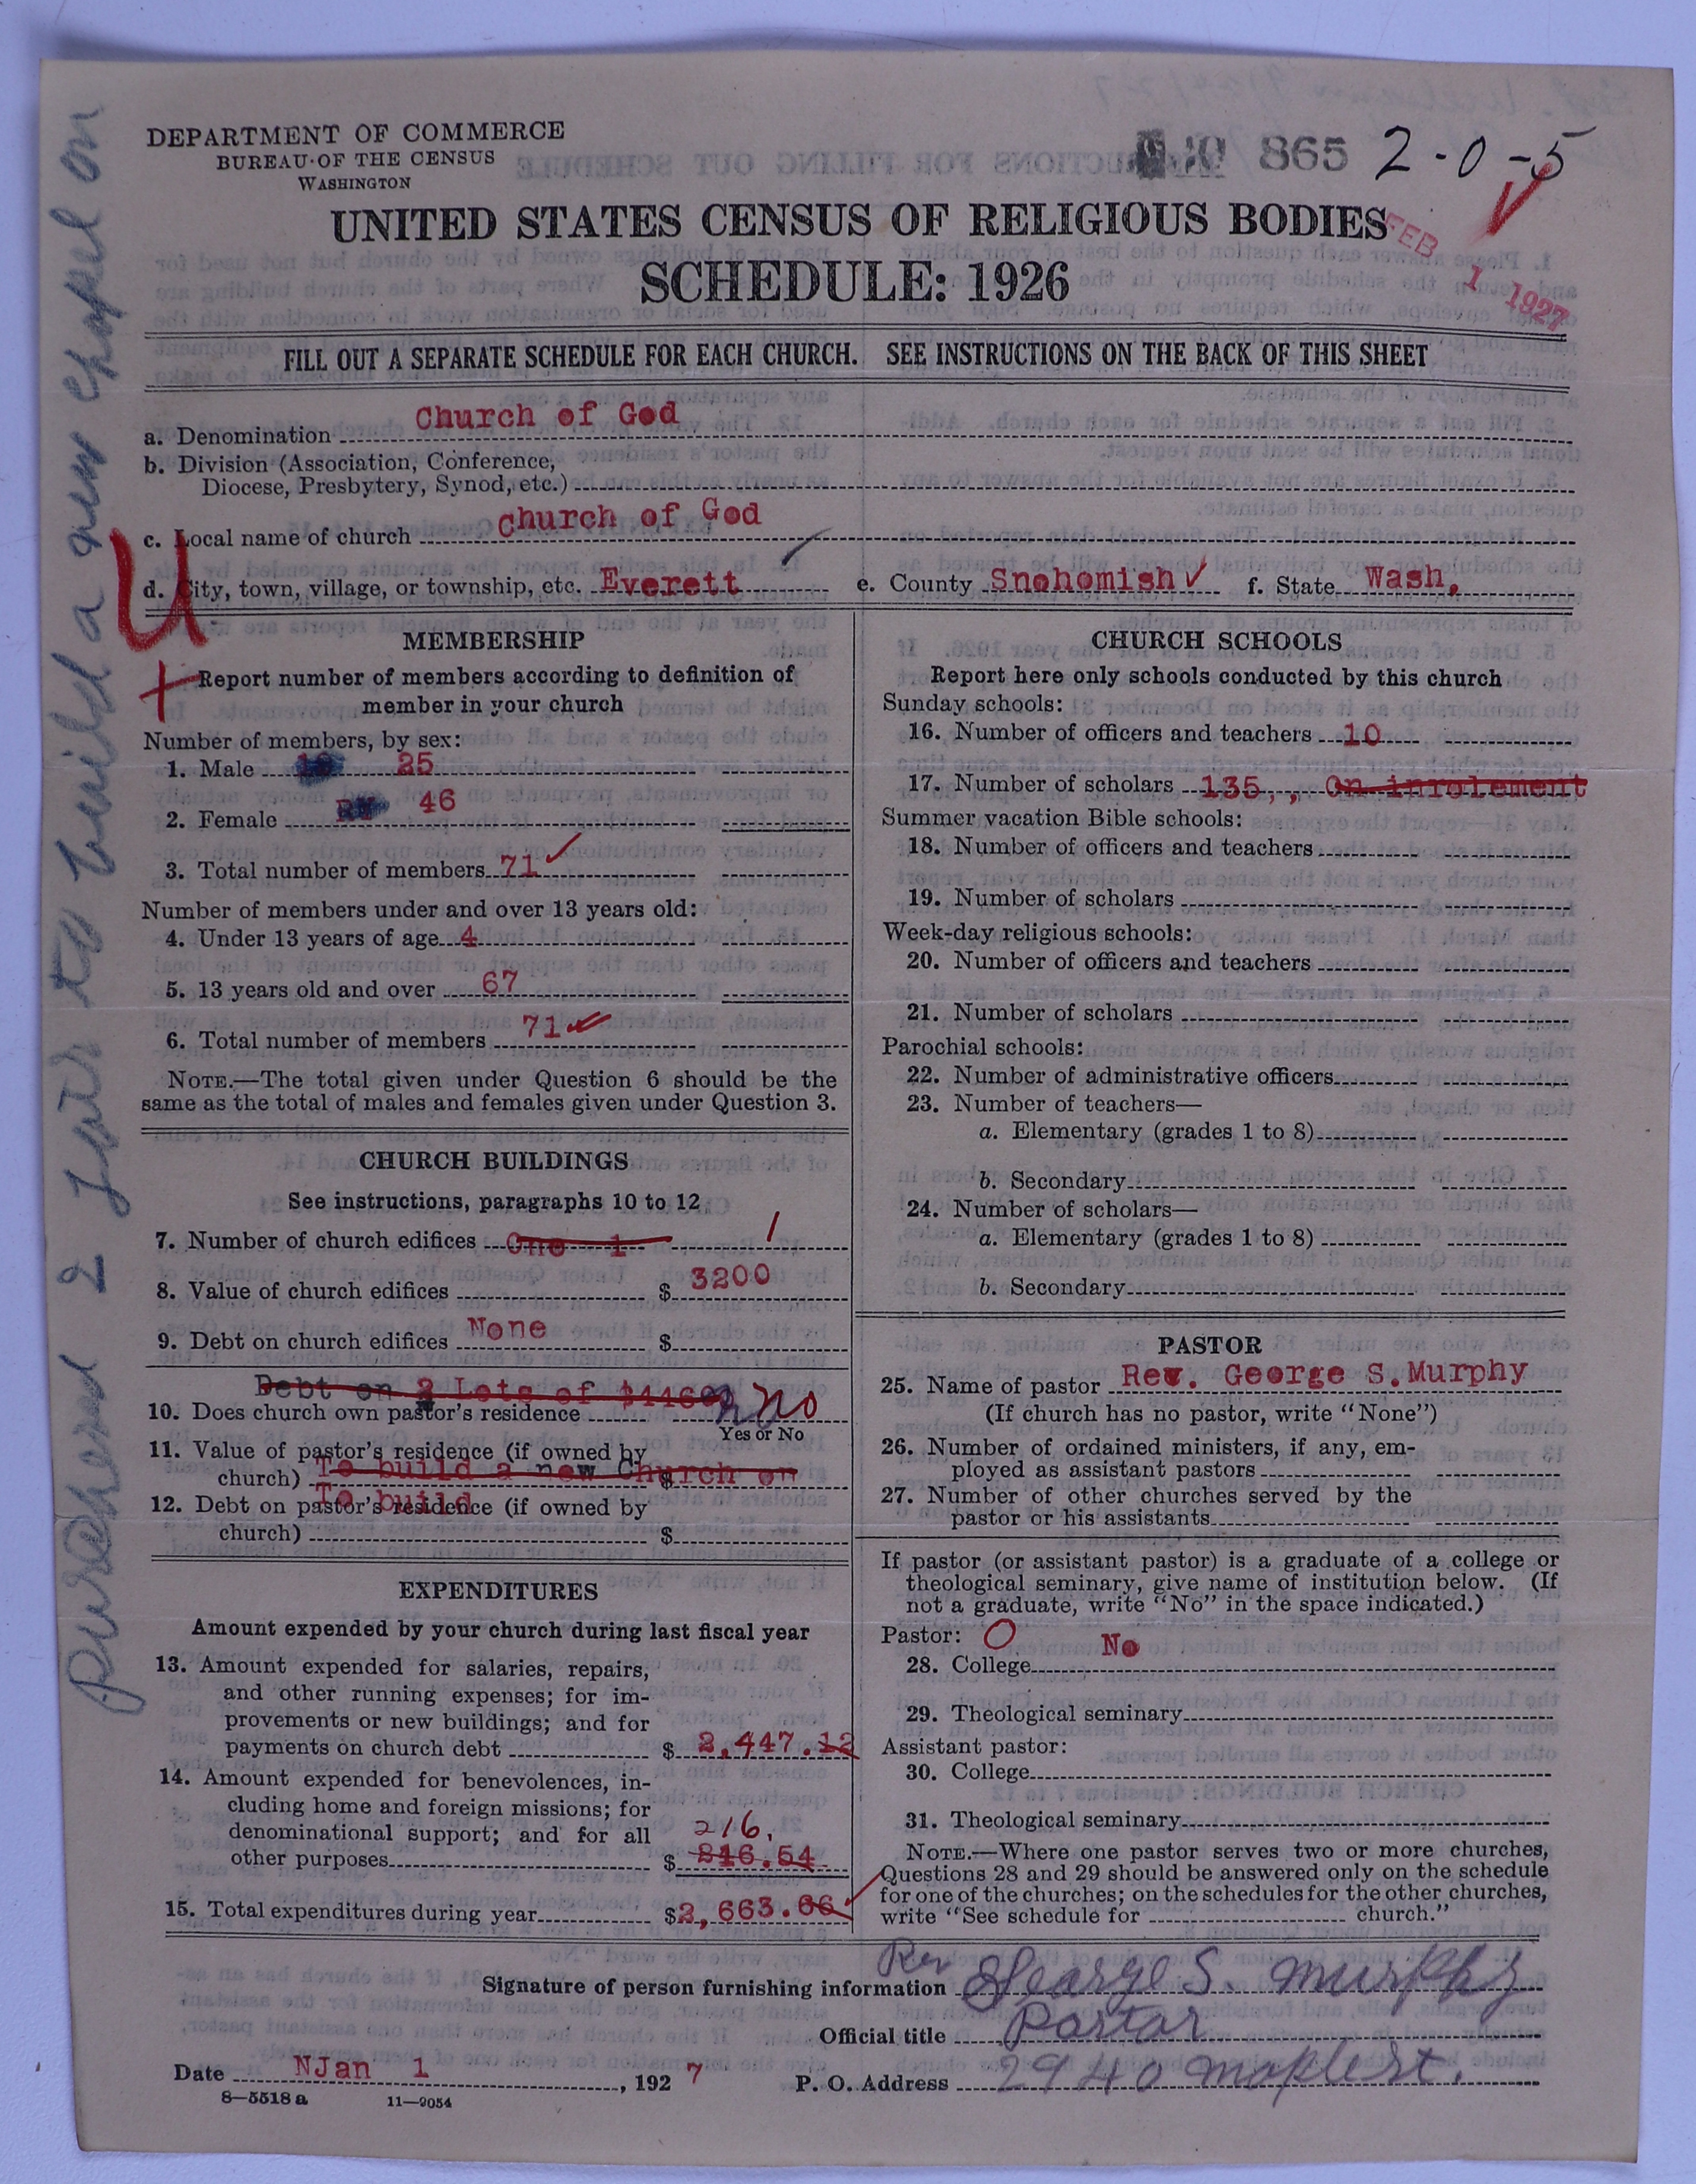 DEPARTMENT OF COMMERCE
BUREAU OF THE CENSUS
WASHINGTON
865 2-0-5
UNITED STATES CENSUS OF RELIGIOUS BODIES
SCHEDULE: 1926
FEB 1 1927
FILL OUT A SEPARATE SCHEDULE FOR EACH CHURCH. SEE INSTRUCTIONS ON THE BACK OF THIS SHEET
a. Denomination Church of God
b. Division (Association, Conference,
Diocese, Presbytery, Synod, etc.)
c. Local name of church Church of God
d. City, town, village, or township, etc. Everett e. County Snohomish f. State Wash,
U
MEMBERSHIP
Report number of members according to definition of
member in your church
Number of members, by sex:
1. Male 25
2. Female 46
3. Total number of members 71
Number of members under and over 13 years old:
4. Under 13 years of age 4
5. 13 years old and over 67
6. Total number of members 71
NOTE.—The total given under Question 6 should be the
same as the total of males and females given under Question 3.
CHURCH BUILDINGS
See instructions, paragraphs 10 to 12
7. Number of church edifices One 1 1
8. Value of church edifices $ 3200
9. Debt on church edifices None $
Debt on 2 Lots of
10. Does church own pastor's residence No
Yes or No
11. Value of pastor's residence (if owned by
church) To build a new Church on $
To build
12. Debt on pastor's residence (if owned by
church) $
EXPENDITURES
Amount expended by your church during last fiscal year
13. Amount expended for salaries, repairs,
and other running expenses; for im-
provements or new buildings; and for
payments on church debt $ 2,447.12
14. Amount expended for benevolences, in-
cluding home and foreign missions; for
denominational support; and for all
216,
other purposes $ 216.54
15. Total expenditures during year $2,663.66
CHURCH SCHOOLS
Report here only schools conducted by this church
Sunday schools:
16. Number of officers and teachers 10
17. Number of scholars 135,, On inrolement
Summer vacation Bible schools:
18. Number of officers and teachers
19. Number of scholars
Week-day religious schools:
20. Number of officers and teachers
21. Number of scholars
Parochial schools:
22. Number of administrative officers
23. Number of teachers—
a. Elementary (grades 1 to 8)
b. Secondary
24. Number of scholars—
a. Elementary (grades 1 to 8)
b. Secondary
PASTOR
25. Name of pastor Rev. George S. Murphy
(If church has no pastor, write "None")
26. Number of ordained ministers, if any, em-
ployed as assistant pastors
27. Number of other churches served by the
pastor or his assistants
If pastor (or assistant pastor) is a graduate of a college or
theological seminary, give name of institution below. (If
not a graduate, write "No" in the space indicated.)
Pastor: O No
28. College
29. Theological seminary
Assistant pastor:
30. College
31. Theological seminary
NOTE.—Where one pastor serves two or more churches,
Questions 28 and 29 should be answered only on the schedule
for one of the churches; on the schedules for the other churches,
write "See schedule for church."
Signature of person furnishing information Rev George S. Murphy
Official title Pastor
Date NJan 1, 1927 P. O. Address 2940 Maple St.
8—5518 a 11—9054
purchased 2 Lots to build a new chapel on